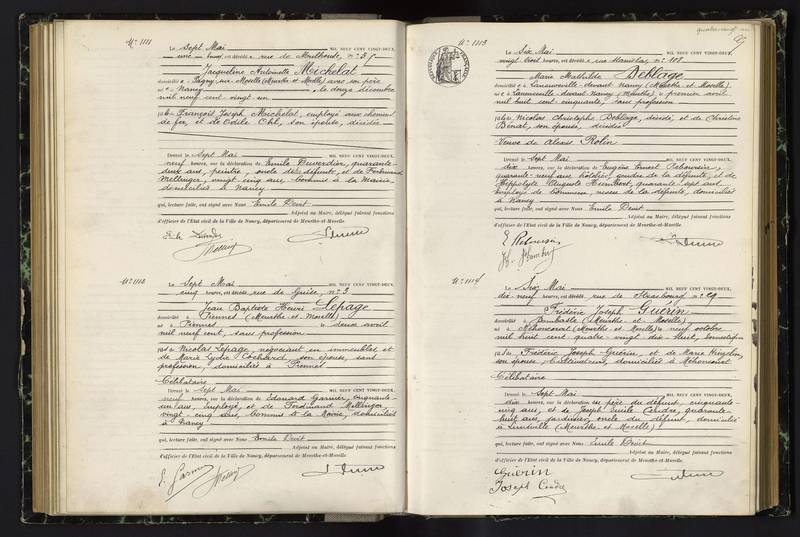 N° 1111
Le Sept Mai MIL NEUF CENT VINGT-DEUX,
une heure, est décédé, rue de Mulhouse, n° 5
Jacqueline Antoinette Michelat
domiciliée à Pagny-sur-Moselle (Meurthe et Moselle) avec son père
née à Nancy, le douze décembre
mil neuf cent vingt un
fille de François Joseph Michelat, employé aux chemins
de fer, et de Odile Ohl, son épouse, décédée
Dressé le Sept Mai MIL NEUF CENT VINGT-DEUX,
neuf heures, sur la déclaration de Emile Duverdier, quarante-
deux ans, peintre, oncle de la défunte, et de Ferdinand
Mellinger, vingt cinq ans, commis à la Mairie,
domiciliés à Nancy
qui, lecture faite, ont signé avec Nous Emile
Adjoint au Maire, délégué faisant fonctions
d'officier de l'Etat civil de la Ville de Nancy, département de Meurthe-et-Moselle.
N° 1112
Le Sept Mai MIL NEUF CENT VINGT-DEUX,
cinq heures, est décédé, rue de Guise, n° 3
Jean Baptiste Henri Lepage
domicilié à Piennes (Meurthe et Moselle)
né à Piennes le deux avril
mil neuf cent, sans profession
fils de Nicolas Lepage, négociant en immeubles, et
de Marie Lydie Cochard, son épouse, sans
profession, domiciliés à Piennes
Célibataire
Dressé le Sept Mai MIL NEUF CENT VINGT-DEUX,
neuf heures, sur la déclaration de Edouard Garnier, cinquante-
un ans, employé, et de Ferdinand Mellinger
vingt cinq ans, commis à la Mairie, domiciliés
à Nancy
qui, lecture faite, ont signé avec Nous Emile
Adjoint au Maire, délégué faisant fonctions
d'officier de l'Etat civil de la Ville de Nancy, département de Meurthe-et-Moselle.
N° 1113
Le Six Mai MIL NEUF CENT VINGT-DEUX,
vingt trois heures, est décédée rue Stanislas, n° 108
Marie Mathilde Deblage
domiciliée à Laneuveville-devant-Nancy (Meurthe et Moselle)
née à Laneuveville-devant-Nancy (Meurthe) le premier avril
mil huit cent cinquante, sans profession
fille de Nicolas Christophe Deblage, décédé, et de Christine
son épouse, décédée
Veuve de Alexis Rolin
Dressé le Sept Mai MIL NEUF CENT VINGT-DEUX,
dix heures, sur la déclaration de Eugène Ernest
quarante-neuf ans, hôtelier, gendre de la défunte, et de
Hippolyte Auguste Humbert, quarante sept ans,
employé de commerce, neveu de la défunte, domiciliés
à Nancy
qui, lecture faite, ont signé avec Nous Emile
Adjoint au Maire, délégué faisant fonctions
d'officier de l'Etat civil de la Ville de Nancy, département de Meurthe-et-Moselle.
N° 1114
Le Six Mai MIL NEUF CENT VINGT-DEUX,
dix-neuf heures, est décédé, rue de Strasbourg, n° 29
Frédéric Joseph Guérin
domicilié à Dombasle (Meurthe et Moselle)
né à Méhoncourt (Meurthe et Moselle) le neuf octobre
mil huit cent quatre-vingt dix-huit,
fils de Frédéric Joseph Guérin, et de Marie
son épouse, cultivateurs, domiciliés à Méhoncourt
Célibataire
Dressé le Sept Mai MIL NEUF CENT VINGT-DEUX,
dix heures, sur la déclaration du père du défunt, cinquante-
cinq ans, et de Joseph Emile Cendre, quarante-
huit ans, jardinier, oncle du défunt, domicilié
à Lunéville (Meurthe et Moselle)
qui, lecture faite, ont signé avec Nous Emile
Adjoint au Maire, délégué faisant fonctions
d'officier de l'Etat civil de la Ville de Nancy, département de Meurthe-et-Moselle.
Guérin
Joseph Cendre